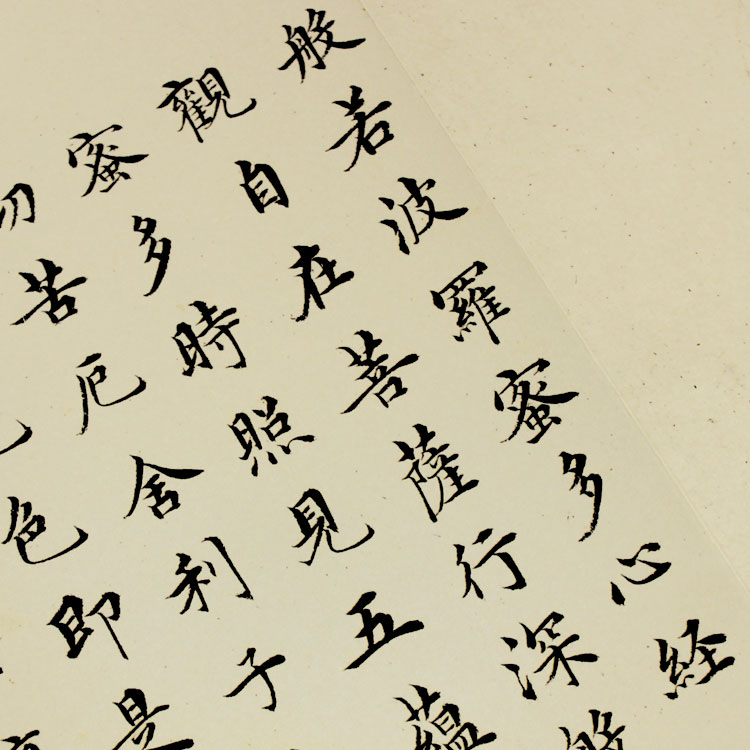 般若波羅蜜多心経
觀自在菩薩行深般
蜜多時照見五蘊
苦厄舍利子
色即是